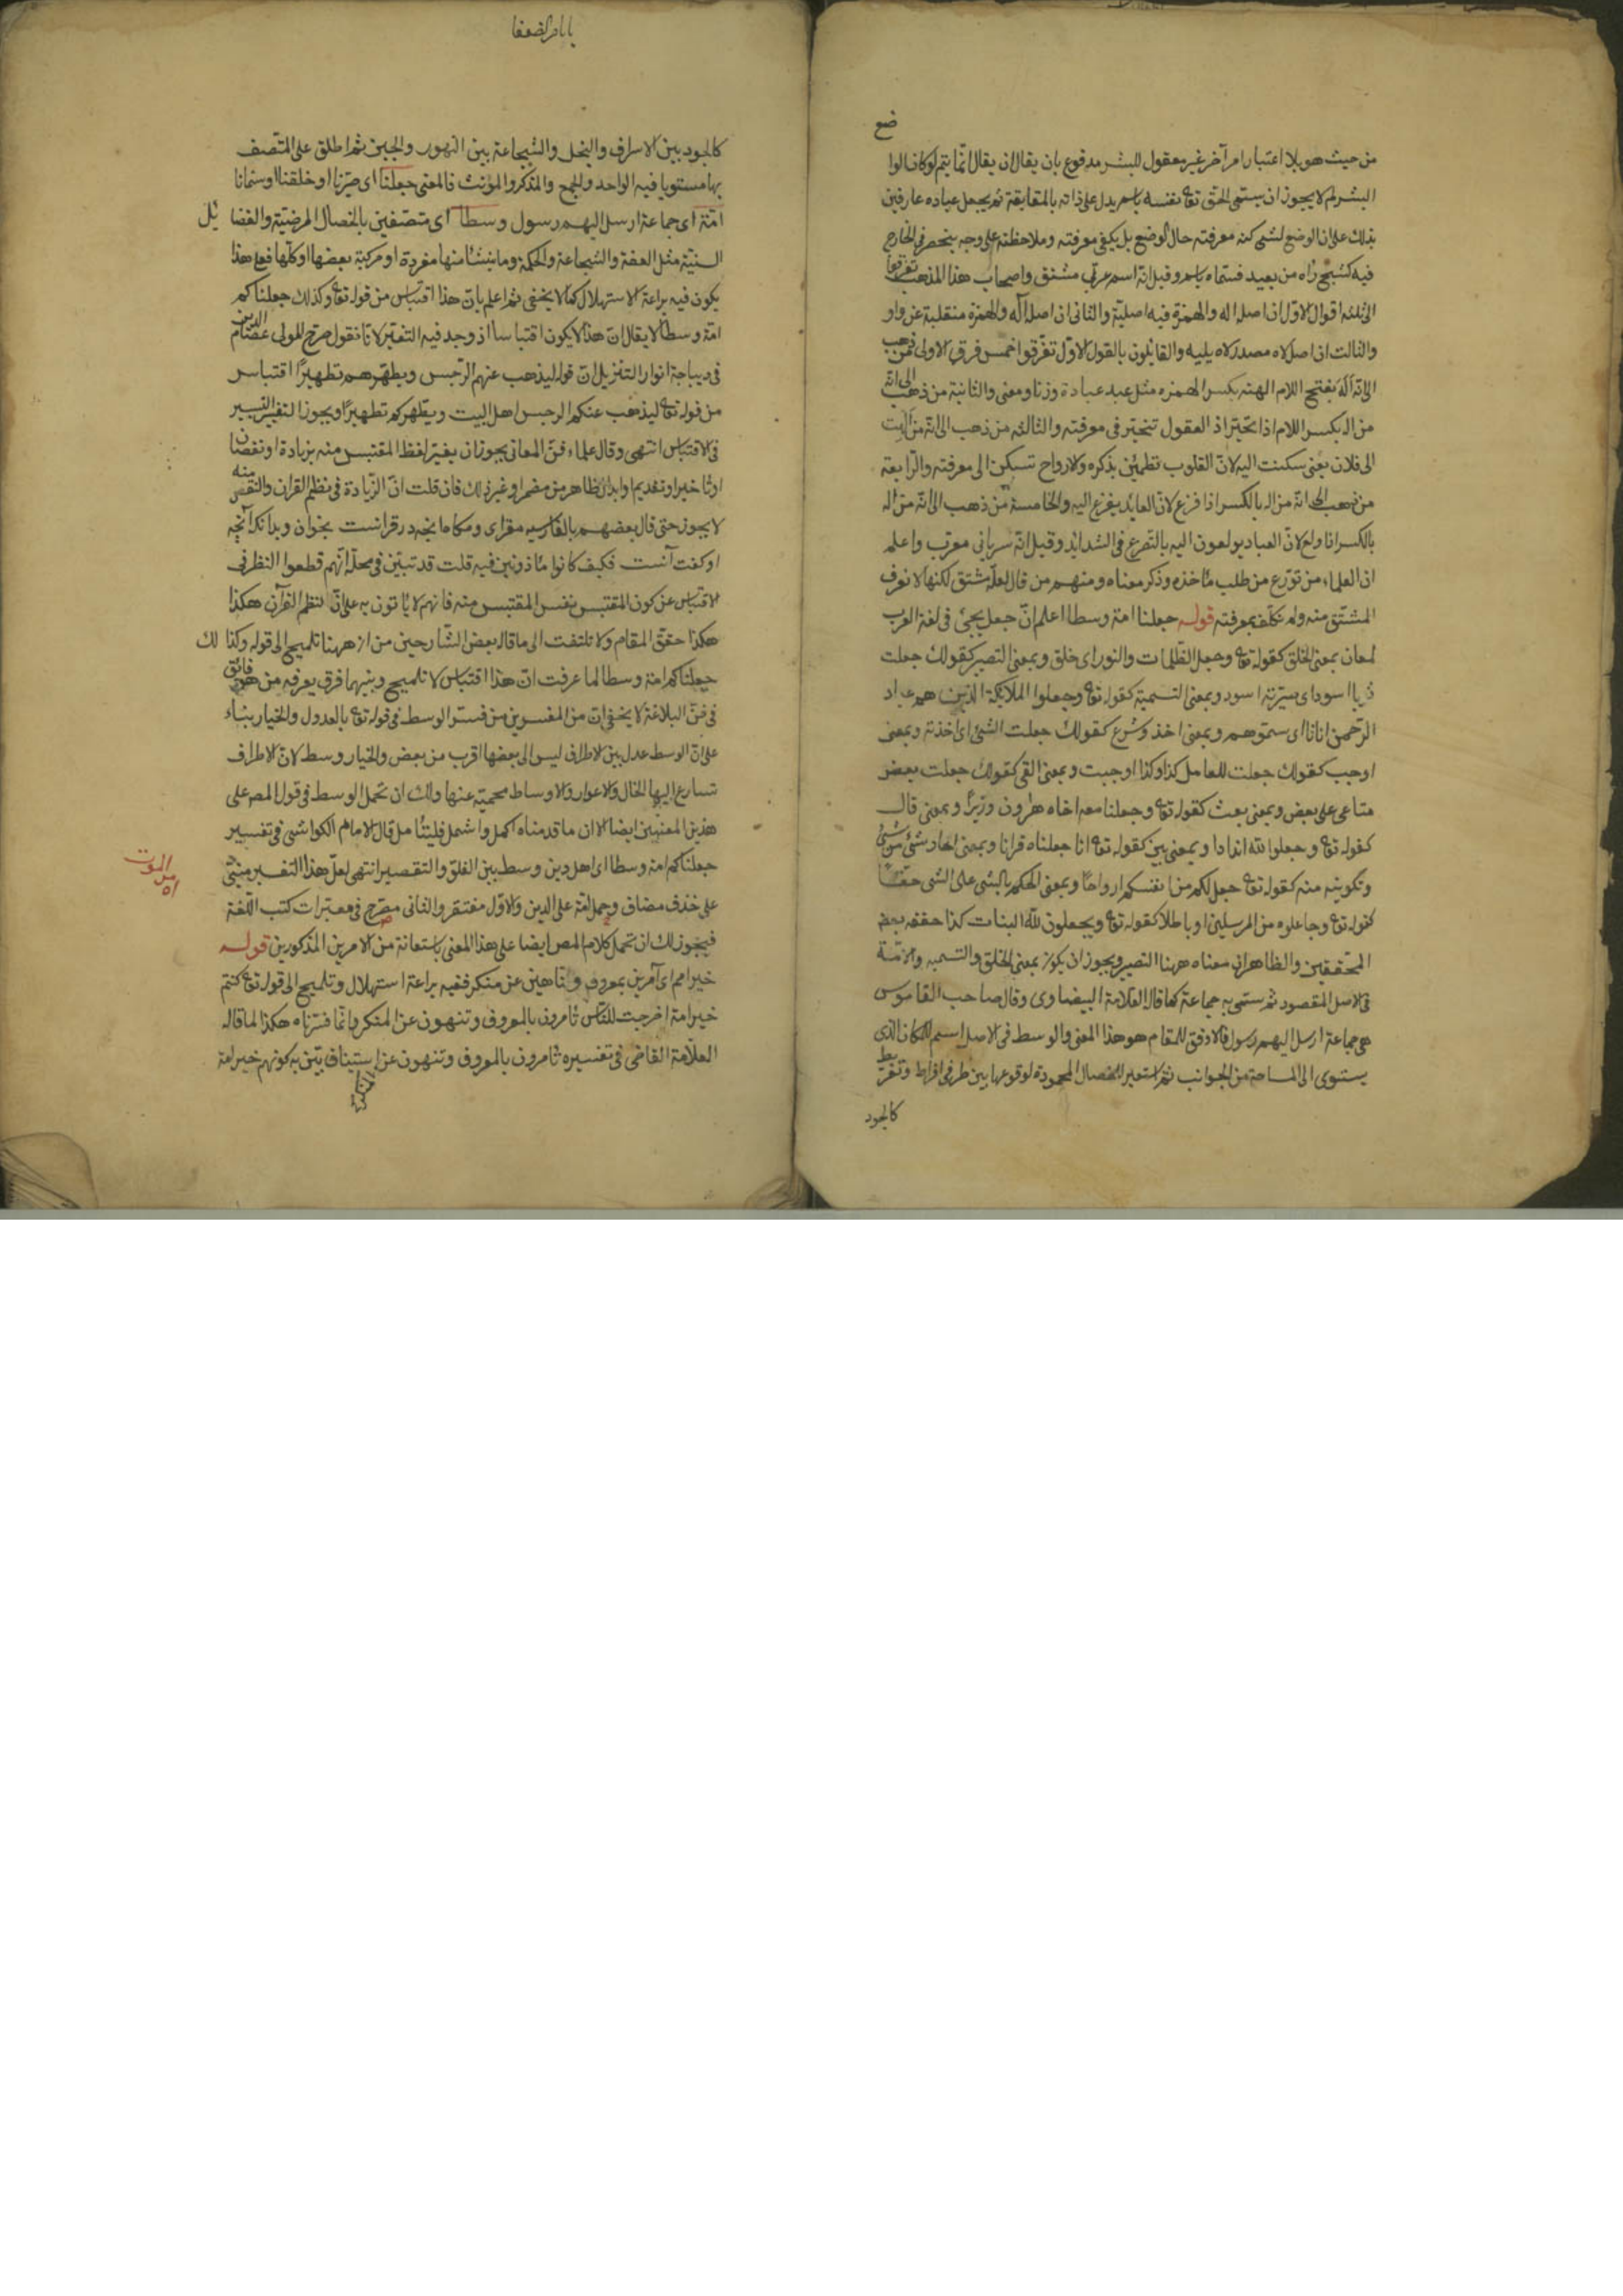 من حيث هو بلا اعتبار امر آخر غير معقول للبشر مدفوع بان يقال ان يقال انما يتم لو كان الوا
ضع
البشر لم لا يجوز ان يسمى الحق تعا نفسه باسم يدل على ذاته بالمطابقة ثم يجعل عباده عارفين
بذلك على ان الوضع لشئ كنه معرفته حال الوضع بل يكفى معرفته وملاحظته على وجه ينحصر فى الخارج
فيه كشبح راه من بعيد فسماه باسم وقيل انه اسم عربي مشتق واصحاب هذا المذهب تفرقوا
الى ثلثة اقوال الاول ان اصله اله والهمزة فيه اصلية والثانى ان اصله اله والهمزة منقلبة عن واو
والثالث ان اصله لاه مصدر لاه يليه والقائلون بالقول الاول تفرقوا خمس فرق الاولى من ذهب
الى انه اله بفتح اللام الهة بكسر الهمزه مثل عبد عبادة وزنا ومعنى والثانية من ذهب الى انه
من اله بكسر اللام اذا تحير اذ العقول تتحير فى معرفته والثالثه من ذهب الى انه من الهت
الى فلان يعنى سكنت اليه لان القلوب تطمئن بذكره والارواح تسكن الى معرفته والرابعة
من ذهب الى انه من اله بالكسر اذا فزع لان العايد يفزع اليه والخامسة من ذهب الى انه من اله
بالكسر اذا ولع لان العباد يولعون اليه بالتضرع فى الشدايد وقيل انه سريانى معرب واعلم
ان العلماء من تورع من طلب مأخذه وذكر معناه ومنهم من قال لعله مشتق لكنها لا نعرف
المشتق منه ولم نكلف بمعرفته قوله جعلنا امة وسطا اعلم ان جعل يجئ فى لغة العرب
لمعان بمعنى الخلق كقوله تعا وجعل الظلمات والنور اى خلق وبمعنى التصير كقولك جعلت
اسود اى صيرته اسود وبمعنى التسمية كقوله تعا وجعلوا الملايكة الذين هم عباد
الرحمن اناثا اى سموهم وبمعنى اخذ وشرع كقولك جعلت الشئ اى اخذته وبمعنى
اوجب كقولك جعلت للعامل كذا وكذا اوجبت وبمعنى القى كقولك جعلت بعض
متاعى على بعض وبمعنى بعث كقوله تعا وجعلنا معه اخاه هرون وزيرا وبمعنى قال
كقوله تعا وجعلوا لله اندادا وبمعنى بين كقوله تعا انا جعلناه قرانا وبمعنى ايجاد شئ من شئ
وتكوينه منه كقوله تعا جعل لكم من انفسكم ازواجا وبمعنى الحكم بالشئ على الشئ حقا
كقوله تعا وجاعلوه من المرسلين او باطلا كقوله تعا ويجعلون لله البنات كذا حققه بعض
المحققين والظاهر ان معناه ههنا التصير ويجوز ان يكون بمعنى الخلق والتسميه والامة
فى الاصل المقصود ثم سمى به جماعة كما قال العلامة البيضاوى وقال صاحب القاموس
هى جماعة ارسل اليهم رسول فالاوفق للمقام هو هذا المعنى والوسط فى الاصل اسم للمكان الذى
يستوى الى المساحة من الجوانب ثم استعير للخصال المحمودة لوقوعها بين طرفى افراط وتفريط
كالجود
كالجود بين الاسراف والبخل والشجاعة بين التهور والجبن ثم اطلق على المتصف
بها مستويا فيه الواحد والجمع والمذكر والمؤنث فالمعنى جعلنا اى صيرنا او خلقنا او سمانا
امة اى جماعة ارسل اليهم رسول وسطا اى متصفين بالخصال المرضية والفضا ئل
السنية مثل العفة والشجاعة والحكمة وما ينشأ منها مفردة او مركبة بعضها او كلها فعلى هذا
يكون فيه براعة الاستهلال كما لا يخفى ثم اعلم بان هذا اقتباس من قوله تعا وكذلك جعلناكم
امة وسطا لا يقال ان هذا لا يكون اقتباسا اذ وجد فيه التغير لانا نقول صرح المولى عصام الدين
فى ديباجة انوار التنزيل ان قوله ليذهب عنهم الرجس ويطهرهم تطهيرا اقتباس
من قوله تعا ليذهب عنكم الرجس اهل البيت ويطهركم تطهيرا ويجوز التغير اليسير
فى الاقتباس انتهى وقال علماء فن المعانى يجوز ان يغير لفظ المقتبس منه بزيادة او نقصان
او تأخير او تقديم او ابدال الظاهر من مضمر او غير ذلك فان قلت ان الزيادة فى نظم القران والنقص منه
لا يجوز حتى قال بعضهم بالفارسيه
او كفت آنست فكيف كانوا مأذونين فيه قلت قد تبين فى محله انهم قطعوا النظر فى
الاقتباس عن كون المقتبس نفس المقتبس منه فانهم لا يأتون به على ان لنظم القرآن هكذا
هكذا حقق المقام ولا تلتفت الى ما قاله بعض الشارحين من ان ههنا تلميح الى قوله وكذا لك
جعلناكم امة وسطا لما عرفت ان هذا اقتباس لا تلميح وبينهما فرق يعرفه من هو فائق
فى فن البلاغة لا يخفى ان من المفسرين من فسر الوسط فى قوله تعا بالعدول والخيار بناء
على ان الوسط عدل بين الاطراف ليس الى بعضها اقرب من بعض والخيار وسط لان الاطراف
تسارع اليها الخال والاعوار والاوساط محمية عنها ولك ان تحمل الوسط فى قول المص على
هذين المعنيين ايضا الا ان ما قدمناه اكمل واشمل فليتأمل قال الامام الكواشى فى تفسير
جعلناكم امة وسطا اى اهل دين وسط بين الغلو والتقصير انتهى لعل هذا التفسير مبنى
على حذف مضاف وحمل لامة على الدين والاول مفتقر والثانى مصرح فى معتبرات كتب اللغة
فيجوز لك ان تحمل كلام المص ايضا على هذا المعنى باستعانة من الامرين المذكورين قوله
خير امم اى آمرين بمعروف وناهين عن منكر ففيه براعة استهلال وتلميح الى قوله تعا كنتم
خير امة اخرجت للناس تأمرون بالمعروف وتنهون عن المنكر وانما فسرناه هكذا لما قاله
العلامة القاضى فى تفسيره تأمرون بالمعروف وتنهون عن المنكر استيناف بين به كونهم خير امة